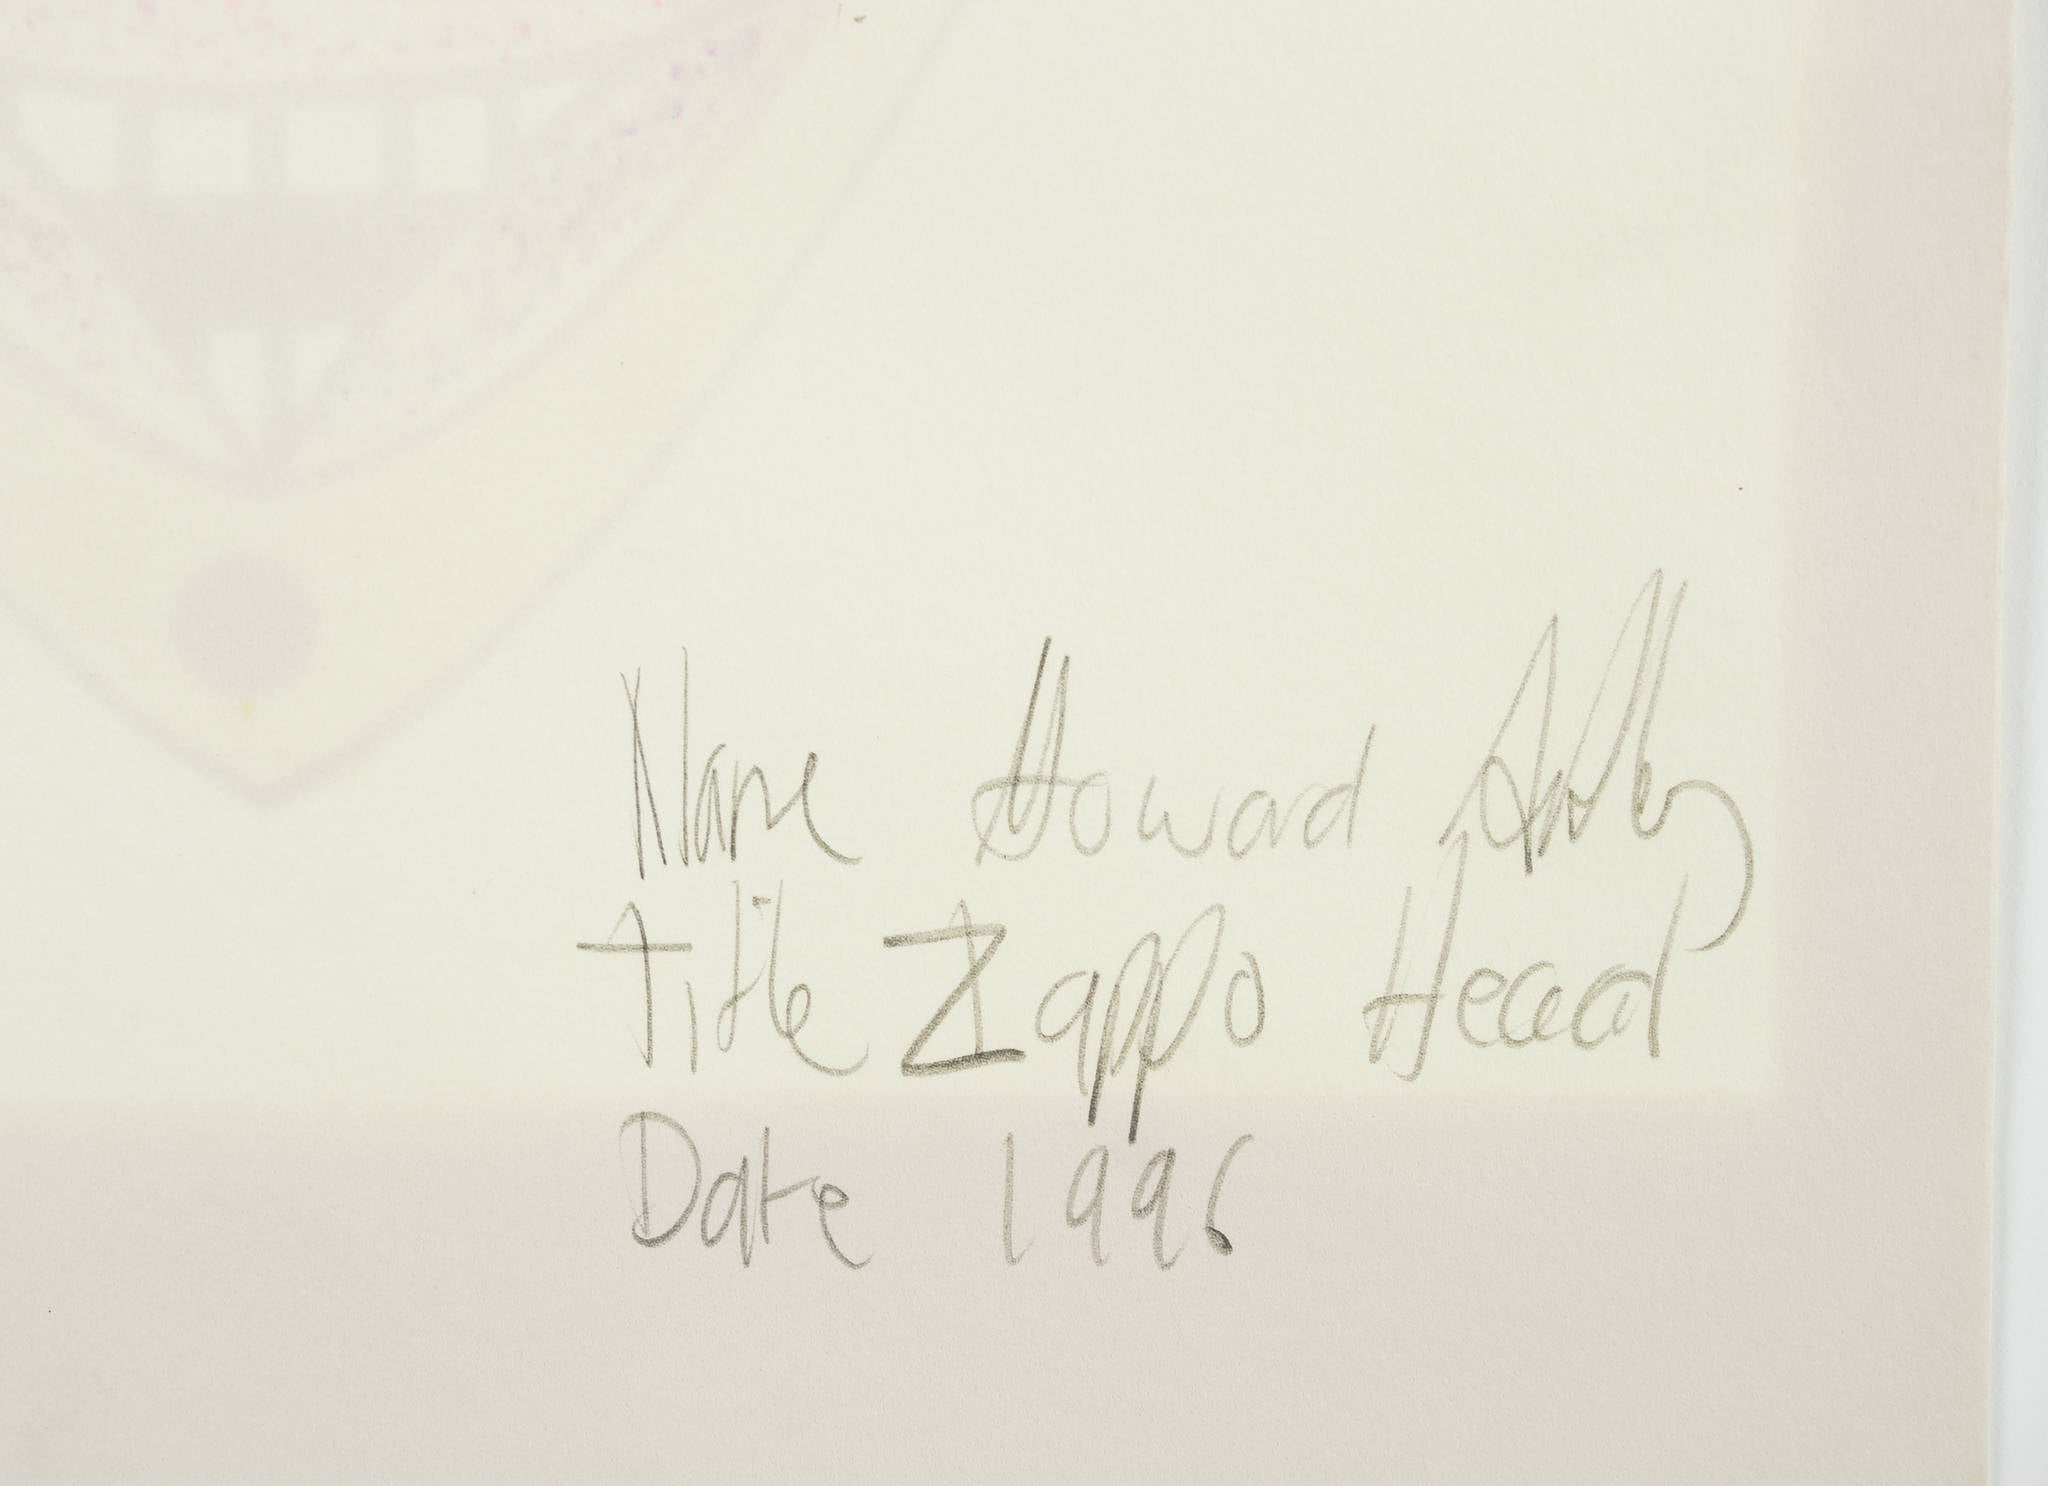 Name Howard Arkley
Title Zappo Head
Date 1996